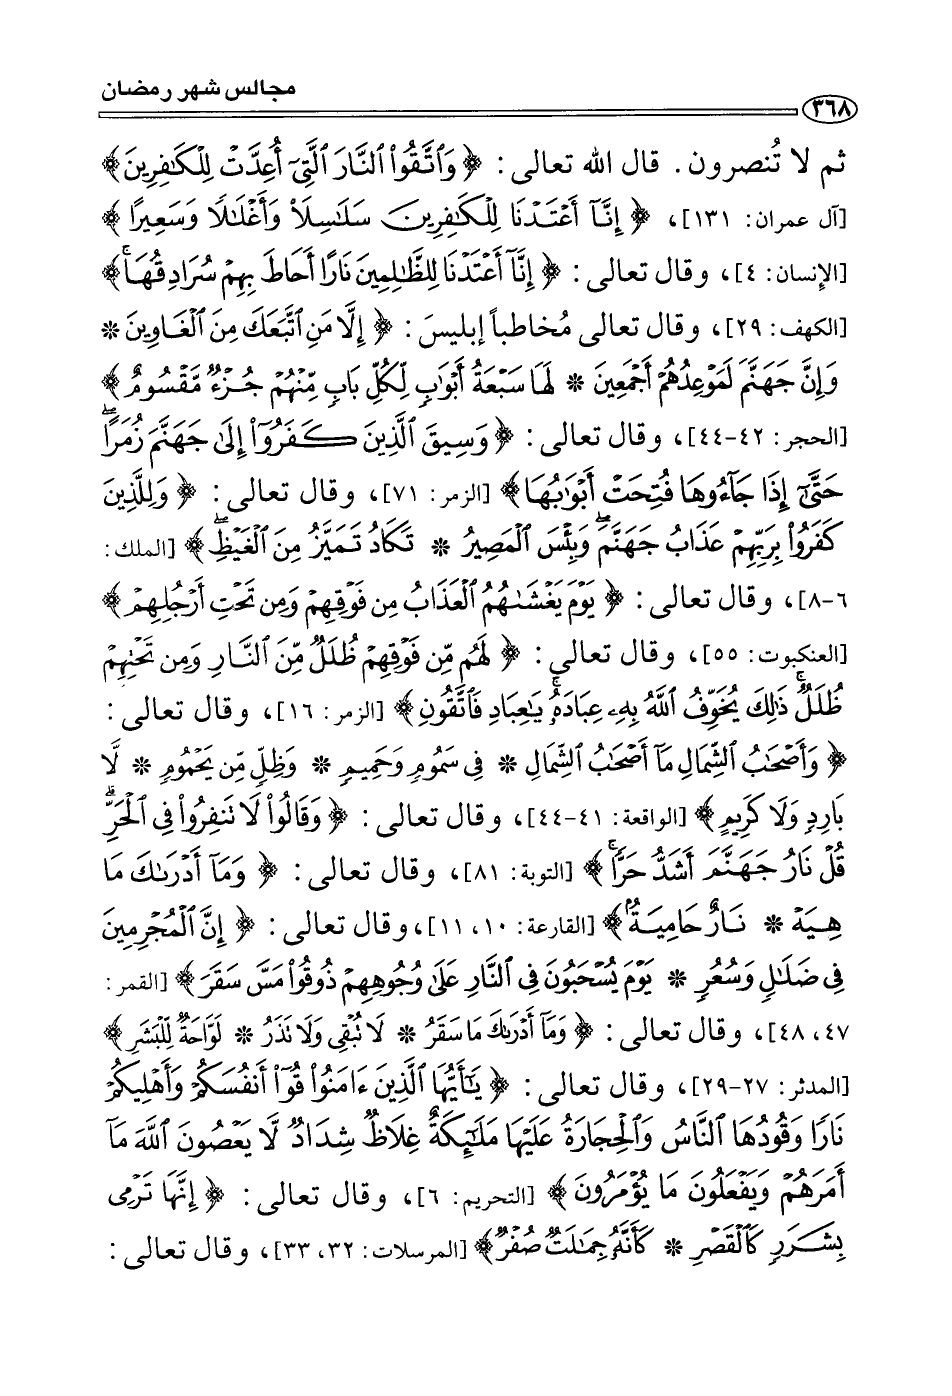 مجالس شهر رمضان
٣٦٨
ثم لا تُنصرون. قال الله تعالى: ﴿وَٱتَّقُوا۟ ٱلنَّارَ ٱلَّتِىٓ أُعِدَّتْ لِلْكَٰفِرِينَ﴾
[آل عمران: ١٣١]، ﴿إِنَّآ أَعْتَدْنَا لِلْكَٰفِرِينَ سَلَٰسِلَا۟ وَأَغْلَٰلًا وَسَعِيرًا﴾
[الإنسان: ٤]، وقال تعالى: ﴿إِنَّآ أَعْتَدْنَا لِلظَّٰلِمِينَ نَارًا أَحَاطَ بِهِمْ سُرَادِقُهَا ۚ﴾
[الكهف: ٢٩]، وقال تعالى مُخاطباً إبليسَ: ﴿إِلَّا مَنِ ٱتَّبَعَكَ مِنَ ٱلْغَاوِينَ *
وَإِنَّ جَهَنَّمَ لَمَوْعِدُهُمْ أَجْمَعِينَ * لَهَا سَبْعَةُ أَبْوَٰبٍ لِّكُلِّ بَابٍ مِّنْهُمْ جُزْءٌ مَّقْسُومٌ﴾
[الحجر: ٤٢-٤٤]، وقال تعالى: ﴿وَسِيقَ ٱلَّذِينَ كَفَرُوٓا۟ إِلَىٰ جَهَنَّمَ زُمَرًا ۖ
حَتَّىٰٓ إِذَا جَآءُوهَا فُتِحَتْ أَبْوَٰبُهَا﴾ [الزمر: ٧١]، وقال تعالى: ﴿وَلِلَّذِينَ
كَفَرُوا۟ بِرَبِّهِمْ عَذَابُ جَهَنَّمَ ۖ وَبِئْسَ ٱلْمَصِيرُ * تَكَادُ تَمَيَّزُ مِنَ ٱلْغَيْظِ ۖ﴾ [الملك:
٦-٨]، وقال تعالى: ﴿يَوْمَ يَغْشَىٰهُمُ ٱلْعَذَابُ مِن فَوْقِهِمْ وَمِن تَحْتِ أَرْجُلِهِمْ﴾
[العنكبوت: ٥٥]، وقال تعالى: ﴿لَهُم مِّن فَوْقِهِمْ ظُلَلٌ مِّنَ ٱلنَّارِ وَمِن تَحْتِهِمْ
ظُلَلٌ ۚ ذَٰلِكَ يُخَوِّفُ ٱللَّهُ بِهِۦ عِبَادَهُۥ ۚ يَٰعِبَادِ فَٱتَّقُونِ﴾ [الزمر: ١٦]، وقال تعالى:
﴿وَأَصْحَٰبُ ٱلشِّمَالِ مَآ أَصْحَٰبُ ٱلشِّمَالِ * فِى سَمُومٍ وَحَمِيمٍ * وَظِلٍّ مِّن يَحْمُومٍ * لَّا
بَارِدٍ وَلَا كَرِيمٍ﴾ [الواقعة: ٤١-٤٤]، وقال تعالى: ﴿وَقَالُوا۟ لَا تَنفِرُوا۟ فِى ٱلْحَرِّ ۗ
قُلْ نَارُ جَهَنَّمَ أَشَدُّ حَرًّا ۚ﴾ [التوبة: ٨١]، وقال تعالى: ﴿وَمَآ أَدْرَىٰكَ مَا
هِيَهْ * نَارٌ حَامِيَةٌۢ﴾ [القارعة: ١٠، ١١]، وقال تعالى: ﴿إِنَّ ٱلْمُجْرِمِينَ
فِى ضَلَٰلٍ وَسُعُرٍ * يَوْمَ يُسْحَبُونَ فِى ٱلنَّارِ عَلَىٰ وُجُوهِهِمْ ذُوقُوا۟ مَسَّ سَقَرَ﴾ [القمر:
٤٧، ٤٨]، وقال تعالى: ﴿وَمَآ أَدْرَىٰكَ مَا سَقَرُ * لَا تُبْقِى وَلَا تَذَرُ * لَوَّاحَةٌ لِّلْبَشَرِ﴾
[المدثر: ٢٧-٢٩]، وقال تعالى: ﴿يَٰٓأَيُّهَا ٱلَّذِينَ ءَامَنُوا۟ قُوٓا۟ أَنفُسَكُمْ وَأَهْلِيكُمْ
نَارًا وَقُودُهَا ٱلنَّاسُ وَٱلْحِجَارَةُ عَلَيْهَا مَلَٰٓئِكَةٌ غِلَاظٌ شِدَادٌ لَّا يَعْصُونَ ٱللَّهَ مَآ
أَمَرَهُمْ وَيَفْعَلُونَ مَا يُؤْمَرُونَ﴾ [التحريم: ٦]، وقال تعالى: ﴿إِنَّهَا تَرْمِى
بِشَرَرٍ كَٱلْقَصْرِ * كَأَنَّهُۥ جِمَٰلَتٌ صُفْرٌ﴾ [المرسلات: ٣٢، ٣٣]، وقال تعالى: